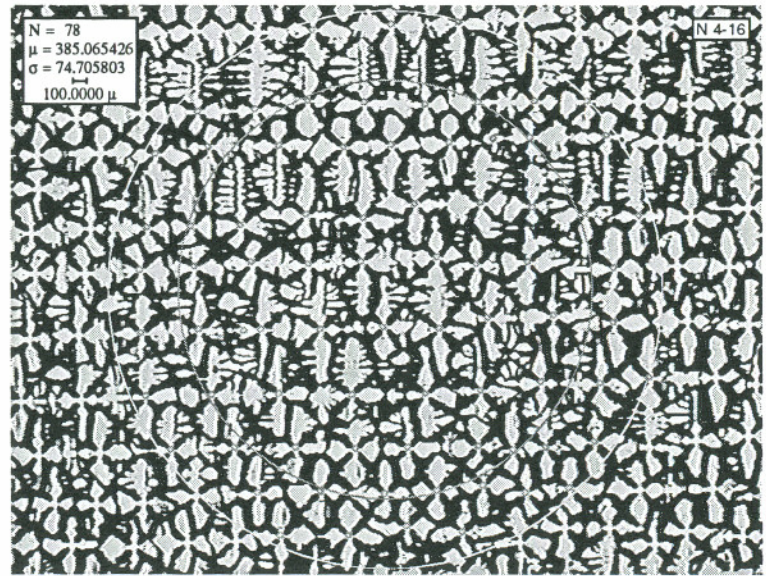 N = 78
μ = 385.065426
σ = 74.705803
100.0000 μ
N 4-16